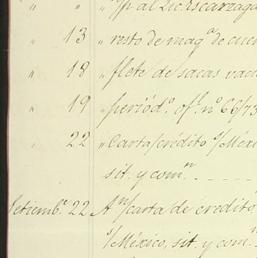 " " " s/p al Lic. Escarzaga
" 13 " resto de maq.ª de cue
" 18 " flete de sacas vac
" 19 " periód.º of.l nº 66/73
" 22 " Carta/crédito s/Méxi
sit. y com.n ----
Setiemb.e 22 A n/carta de credito
s/México, sit. y com.n